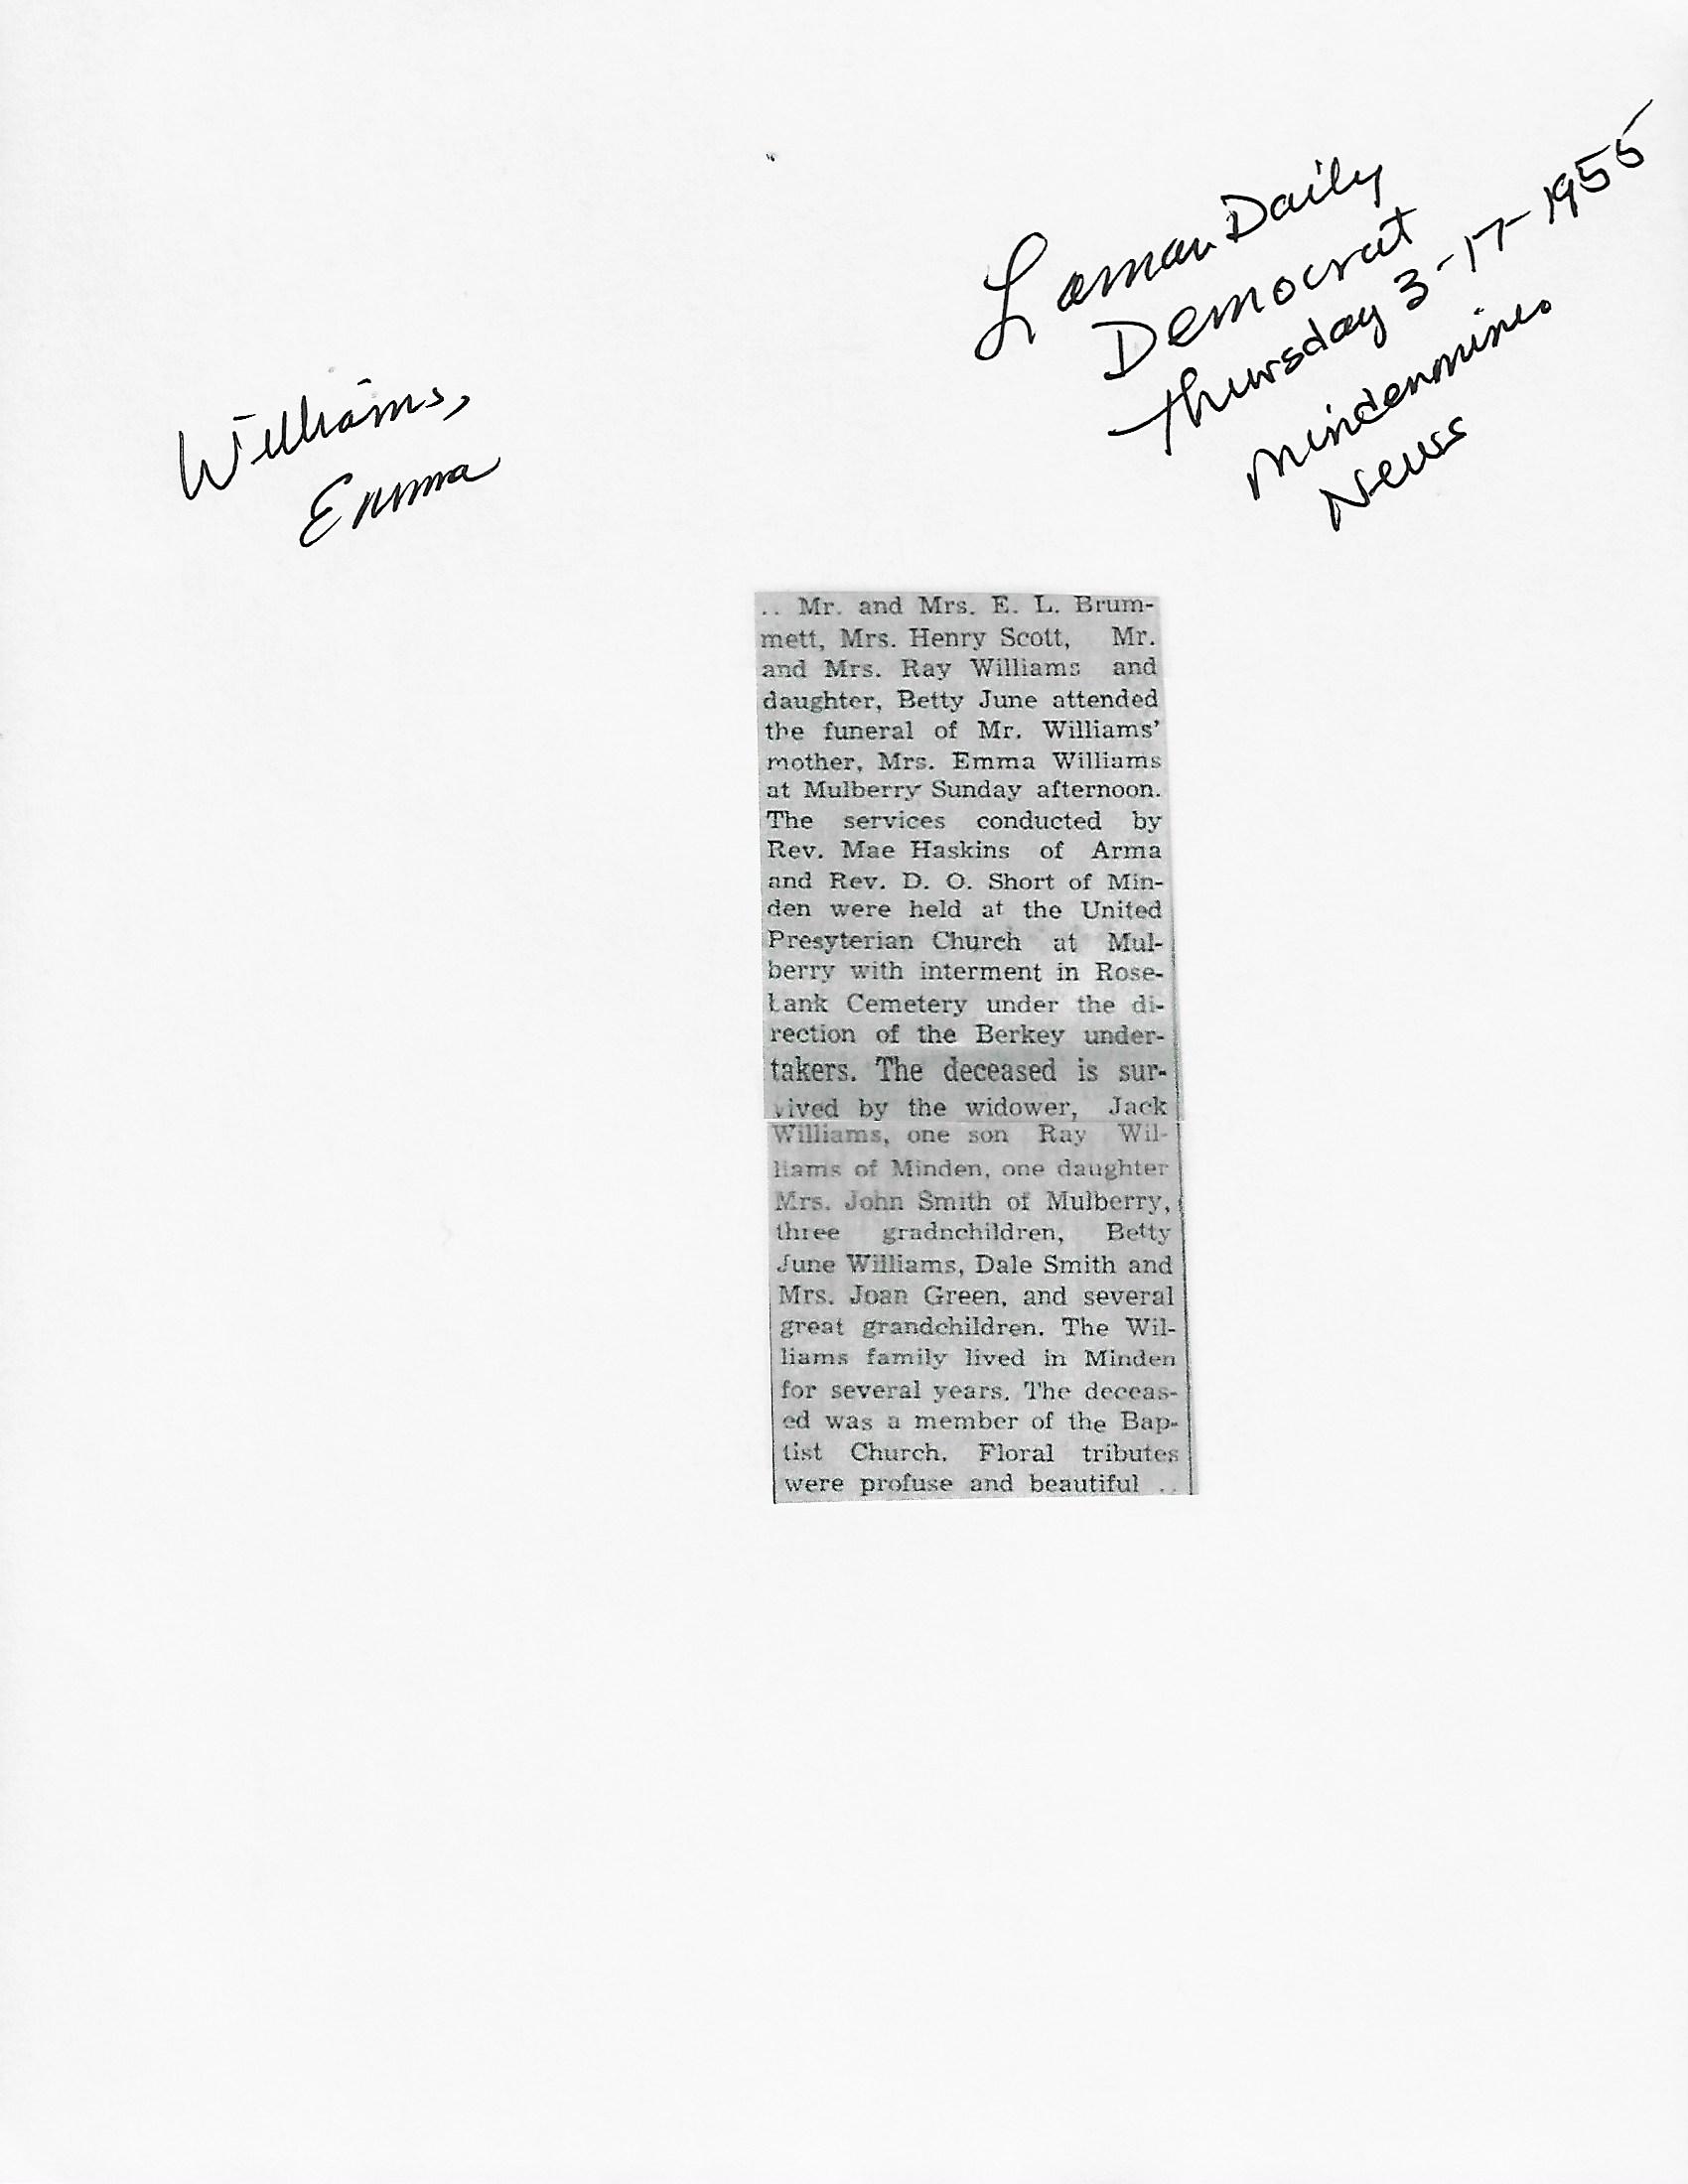 Lamar Daily
Democrat
Thursday 3-17-1955
Mindenmines
News
Williams,
Emma
.. Mr. and Mrs. E. L. Brum-
mett, Mrs. Henry Scott, Mr.
and Mrs. Ray Williams and
daughter, Betty June attended
the funeral of Mr. Williams'
mother, Mrs. Emma Williams
at Mulberry Sunday afternoon.
The services conducted by
Rev. Mae Haskins of Arma
and Rev. D. O. Short of Min-
den were held at the United
Presyterian Church at Mul-
berry with interment in Rose-
bank Cemetery under the di-
rection of the Berkey under-
takers. The deceased is sur-
vived by the widower, Jack
Williams, one son Ray Wil-
liams of Minden, one daughter
Mrs. John Smith of Mulberry,
three gradnchildren, Betty
June Williams, Dale Smith and
Mrs. Joan Green, and several
great grandchildren. The Wil-
liams family lived in Minden
for several years. The deceas-
ed was a member of the Bap-
tist Church. Floral tributes
were profuse and beautiful ..